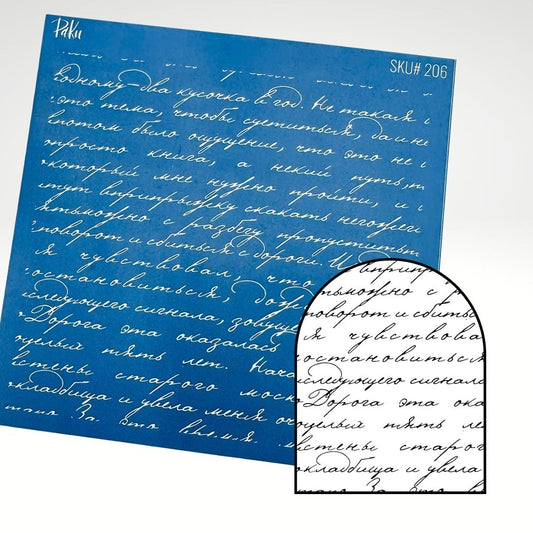 Раки
SKU# 206
по одному-два кусочка в год. Не такая
это тема, чтобы суетиться, да и не
потом было ощущение, что это не
просто книга, а некий путь,
который мне нужно пройти, и
тут вприпрыжку скакать негоже
можно с разбегу пропустить
поворот и сбиться с дороги. И
я чувствовал, что
остановиться,
следующего сигнала,
Дорога эта оказалась
целый пять лет. Нача
стены старого моск
кладбища и увела меня
За это
вприпр
тьможно с р
поворот и сбитьс
я чувствова
остановитьс
следующего сигнала
Дорога эта ока
целый пять ле
стены старог
кладбища и увела
За это